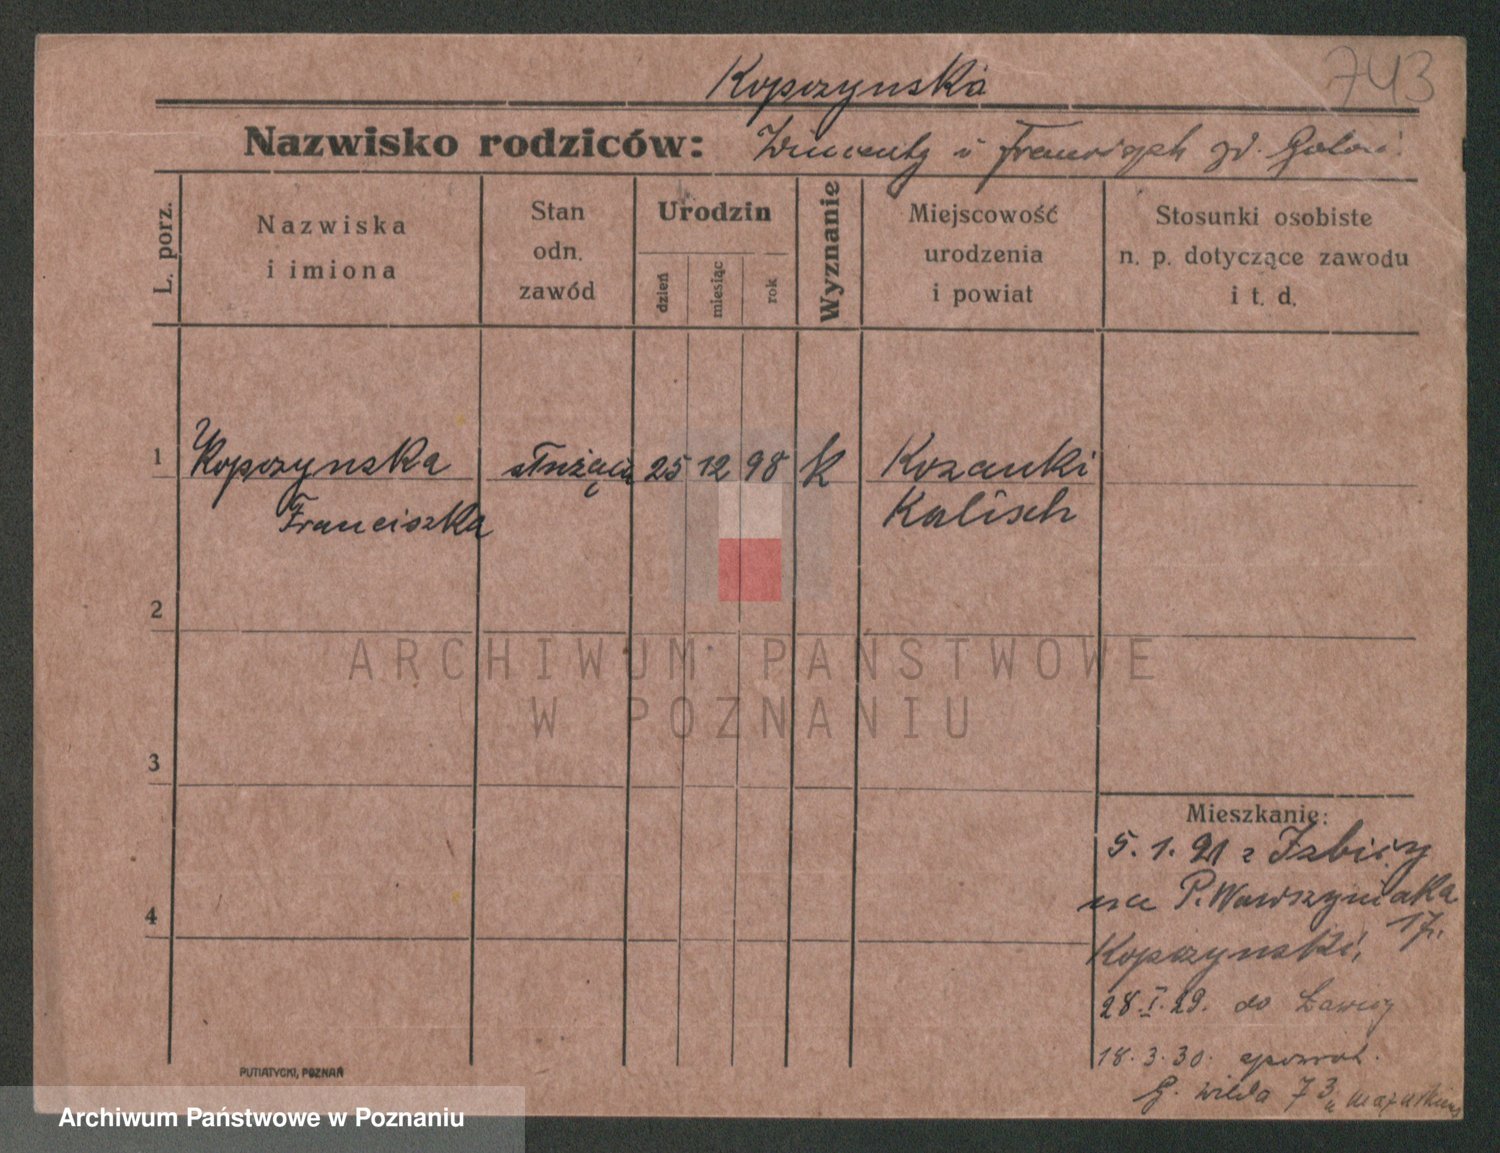 743
Kopczynska
Nazwisko rodziców: Wincenty i Franciszk
L. porz.
Nazwiska
i imiona
Stan
odn.
zawód
Urodzin
dzień
miesiąc
rok
Wyznanie
Miejscowość
urodzenia
i powiat
Stosunki osobiste
n. p. dotyczące zawodu
i t. d.
1 Kopczynska służąca 25 12 98 k Kozanki
Franciszka Kalisch
2
3
4
Mieszkanie:
5. 1. 21 z Izbicy
P. Wawrzyniaka
17.
Kopczynski,
28. I. 29. do Ławicy
18. 3. 30.
G. Wilda 73
PUTIATYCKI, POZNAŃ
ARCHIWUM PAŃSTWOWE
W POZNANIU
Archiwum Państwowe w Poznaniu